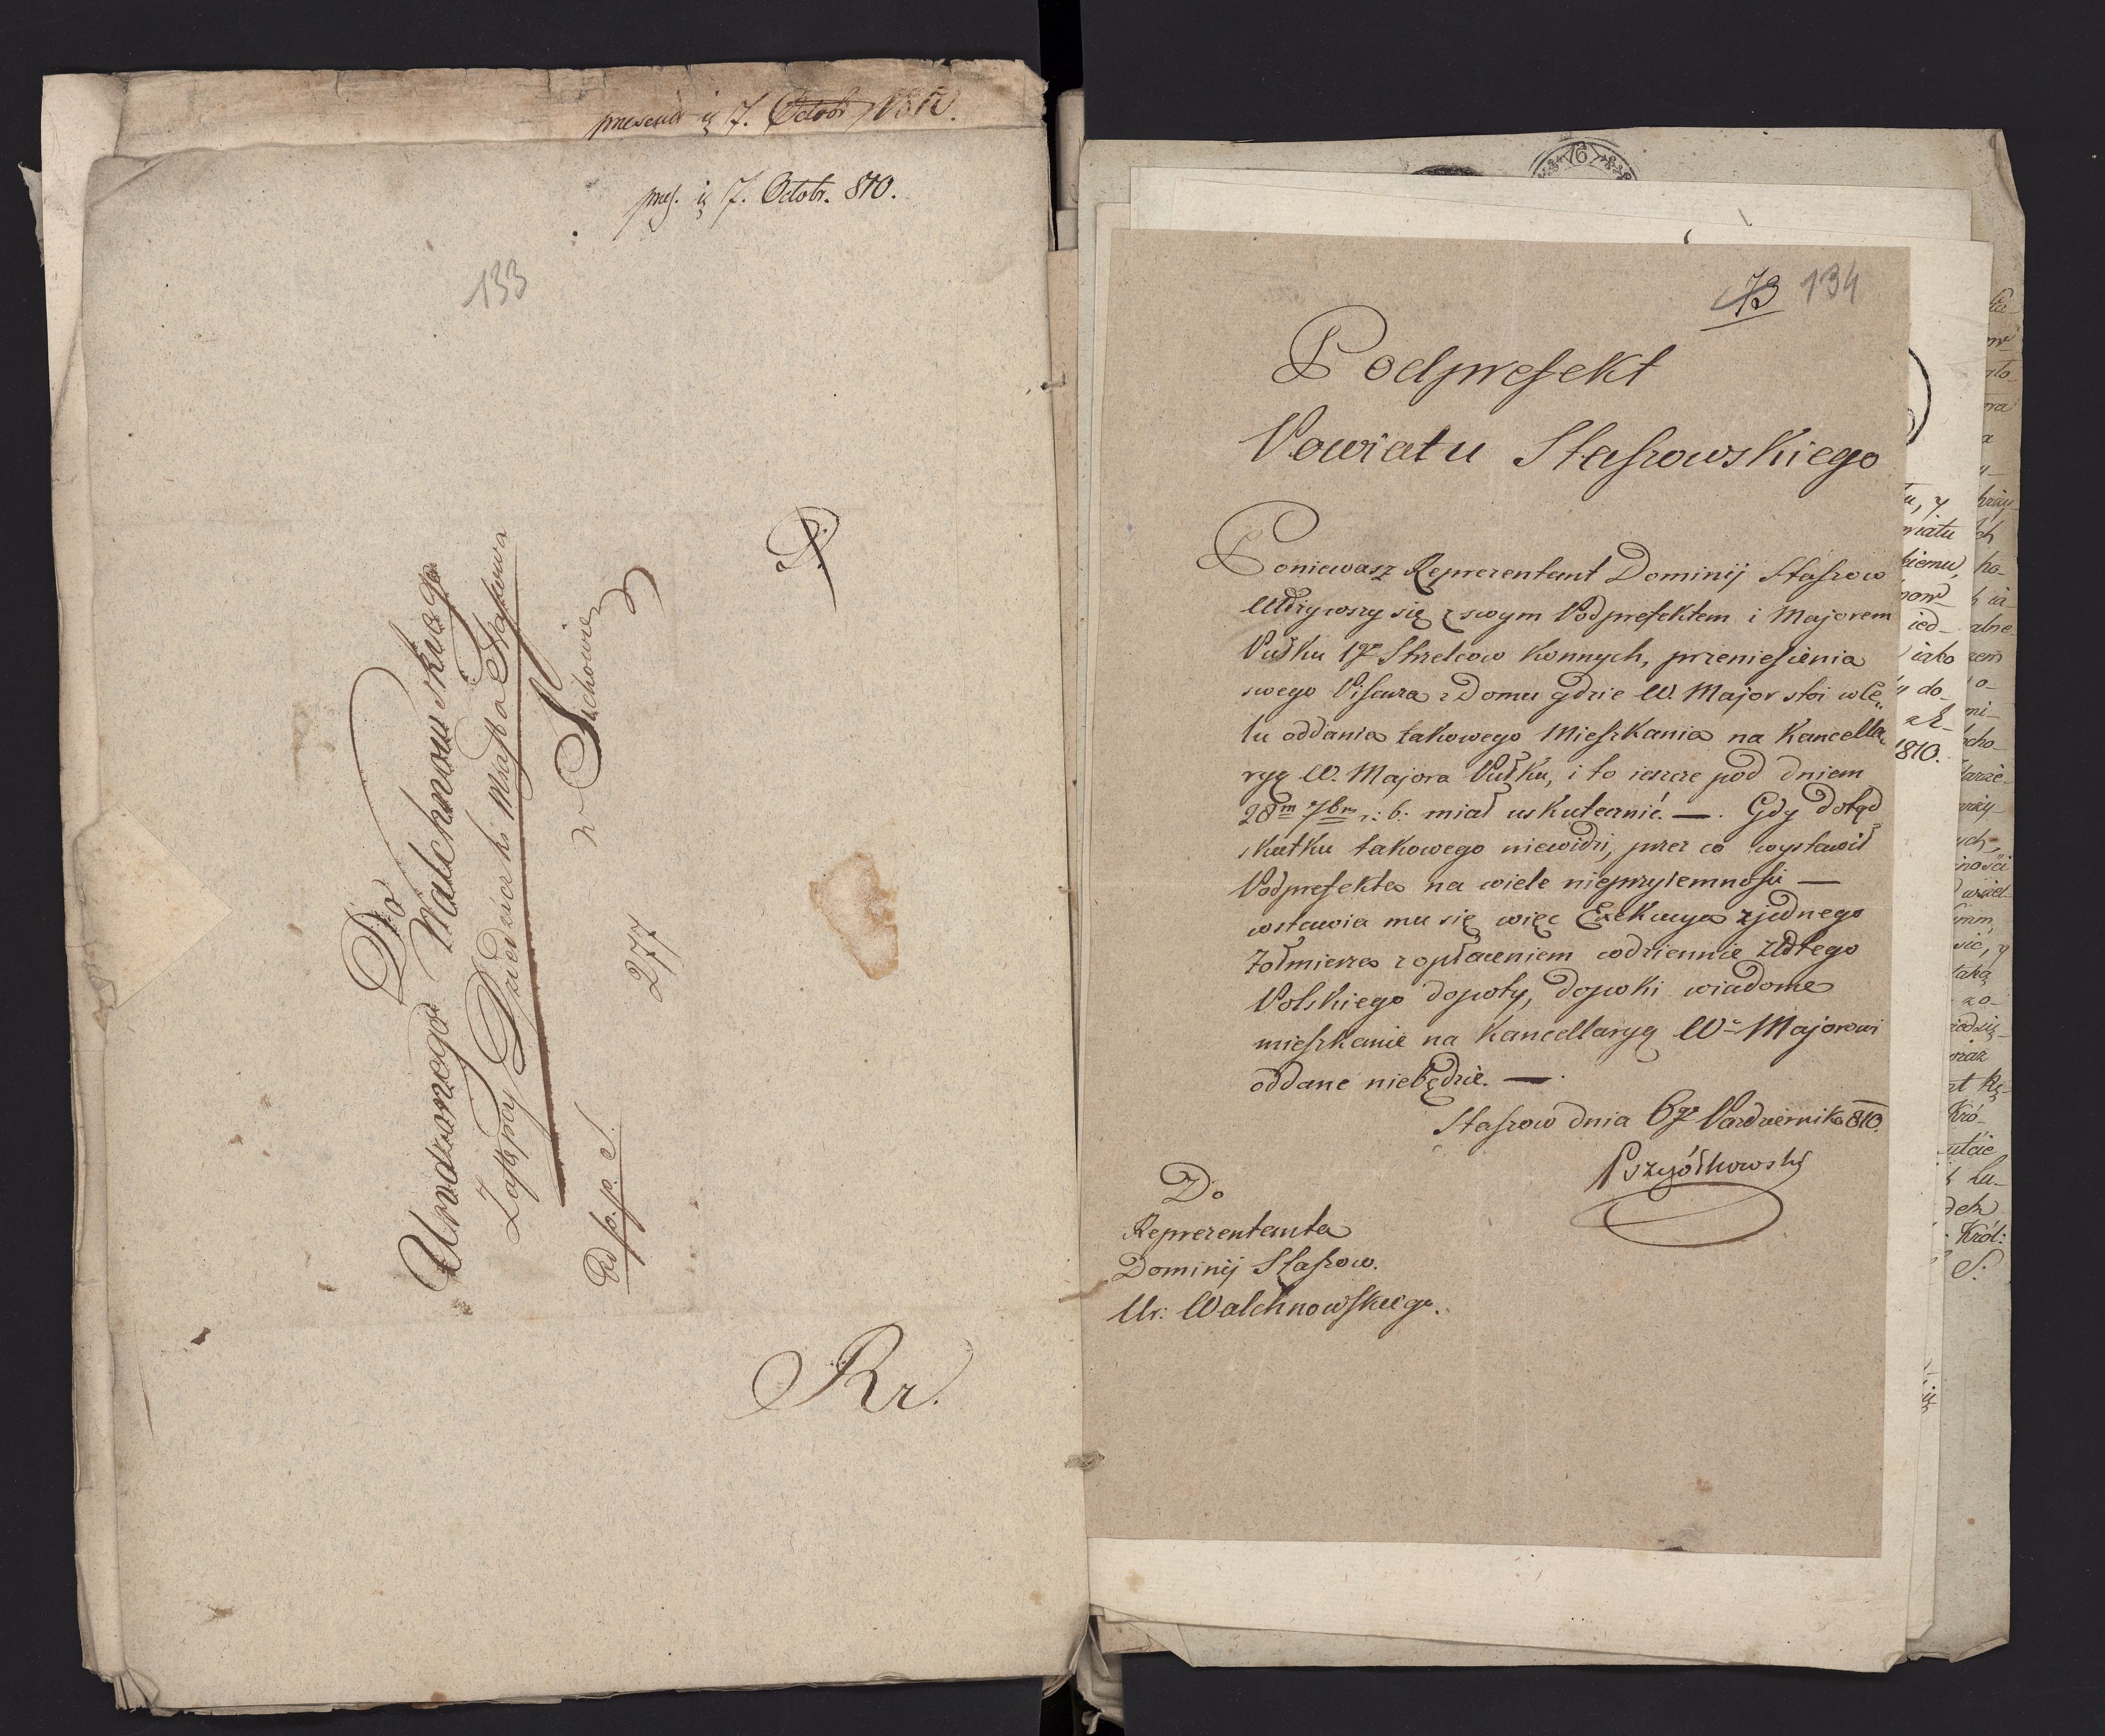 7. Octobr 1810.
7. Octobr. 810.
133
Do
Urodzonego Walchnowskiego
Zastępcy Dziedzica hr. Miasta Staszowa
w Sichowie
277
Rr.
73 134
Podprefekt
Powiatu Staszowskiego
Poniewasz Reprezentant Dominij Staszow
Ułożywszy się z swym Podprefektem i Majorem
Pułku 1go Strzelcow Konnych, przeniesienia
swego Pisarza z Domu gdzie W. Major stoi w Ce„
lu oddania takowego Mieszkania na Kancella„
ryę W. Majora Pułku, i to ieszcze pod dniem
28m 7bra r: b: miał uskutecznić. —. Gdy dotąd
skutku takowego niewidzi, przez co wystawił
Podprefekta na wiele nieprzyiemności —
wstawia mu się więc Exekucya z jednego
Żołnierza z opłaceniem codziennie Złotego
Polskiego dopoty, dopoki wiadome
mieszkanie na Kancellaryą W. Majorowi
oddane niebędzie. —.
Staszow dnia 6go Pazdziernika 810.
Pszyółkowski
Do
Reprezentanta
Dominij Staszow.
Ur: Walchnowskiego.